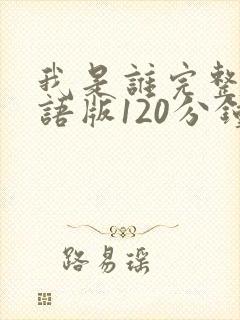 我是誰完整
語版120分鐘
路易瑶